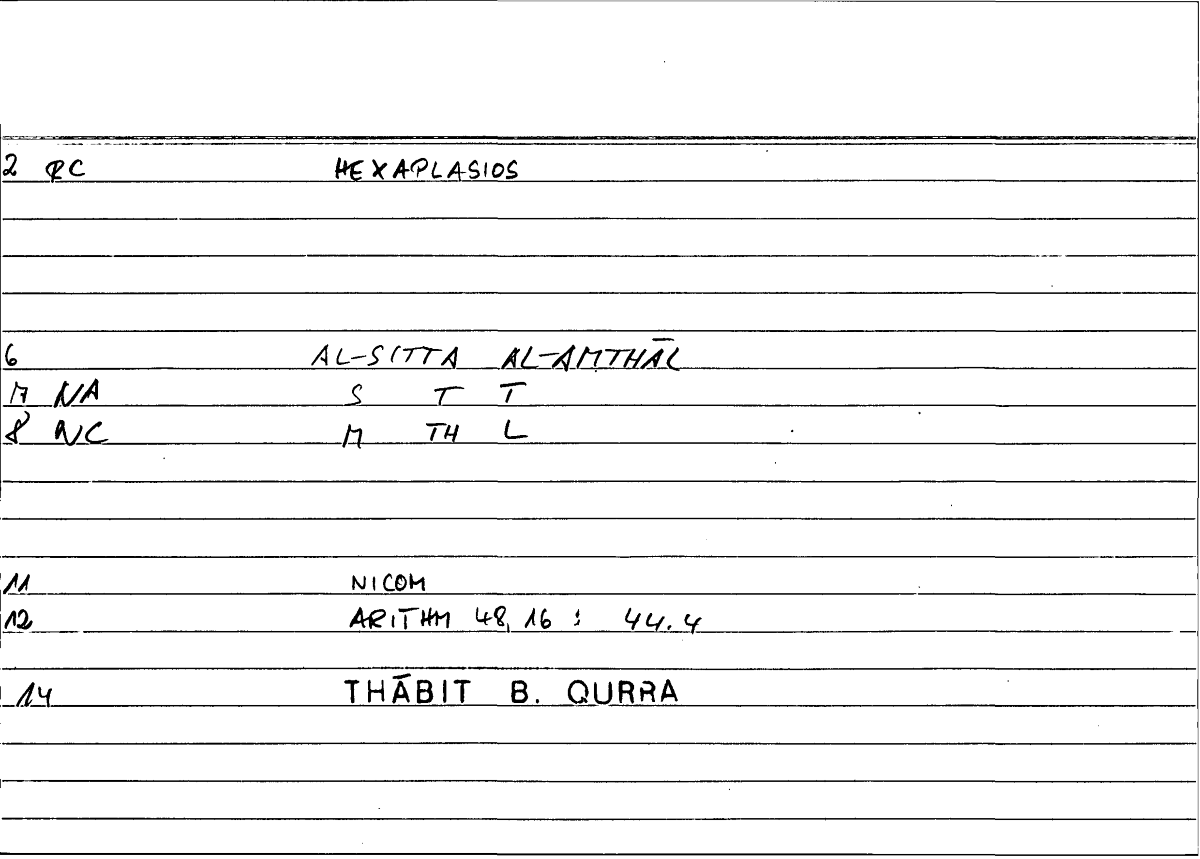 2 RC HEXAPLASIOS
6 AL-SITTA AL-AMTHĀL
7 NA S T T
8 NC M TH L
11 NICOM
12 ARITHM 48,16 : 44.4
14 THĀBIT B. QURRA